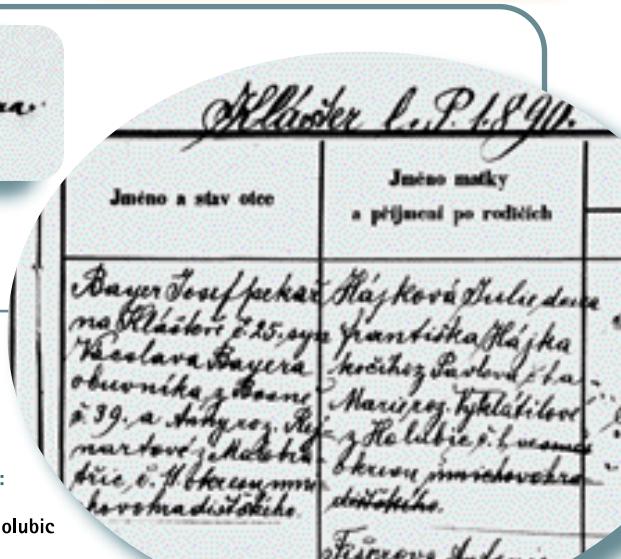 Klášter l. P. 1890.
Jméno a stav otce
Jméno matky
a příjmení po rodičích
Bayer Josef pekař
na Klášteře č. 25. syn
Václava Bayera
obuvníka z Bosně
č. 39. a Anny roz.
č. 11. okresu mni
chovohradišťského.
Hájková Julie, dcera
Františka Hájka
kočího z Pavlova
Marie roz. Vyklátilové
z Holubic č. 1. vesměs
okresu mnichovohra
dišťského.
olubic